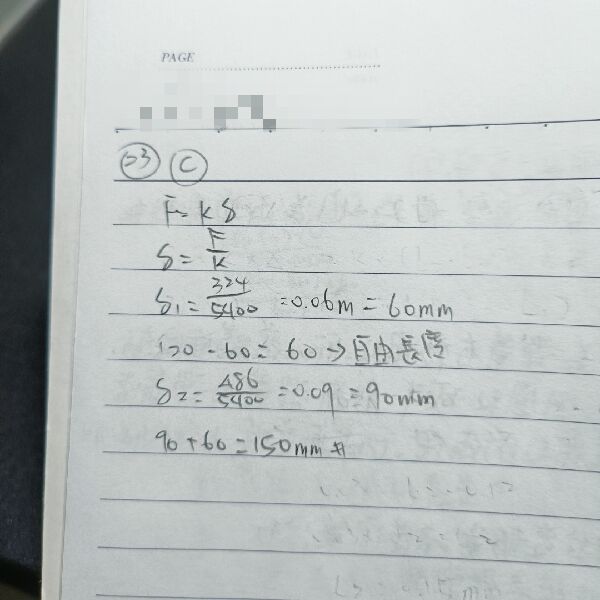 PAGE
23 C
F=Kδ
δ=F/K
δ1=324/5400=0.06m=60mm
120-60=60→自由長度
δ2=486/5400=0.09=90mm
90+60=150mm#